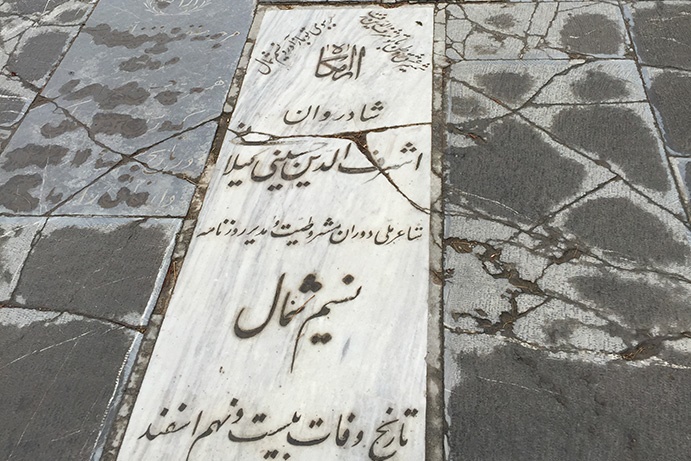 آرامگاه
شادروان
اشرف الدین حسینی گیلانی
شاعر ملی دوران مشروطیت و مدیر روزنامه
نسیم شمال
تاریخ وفات بیست و نهم اسفند